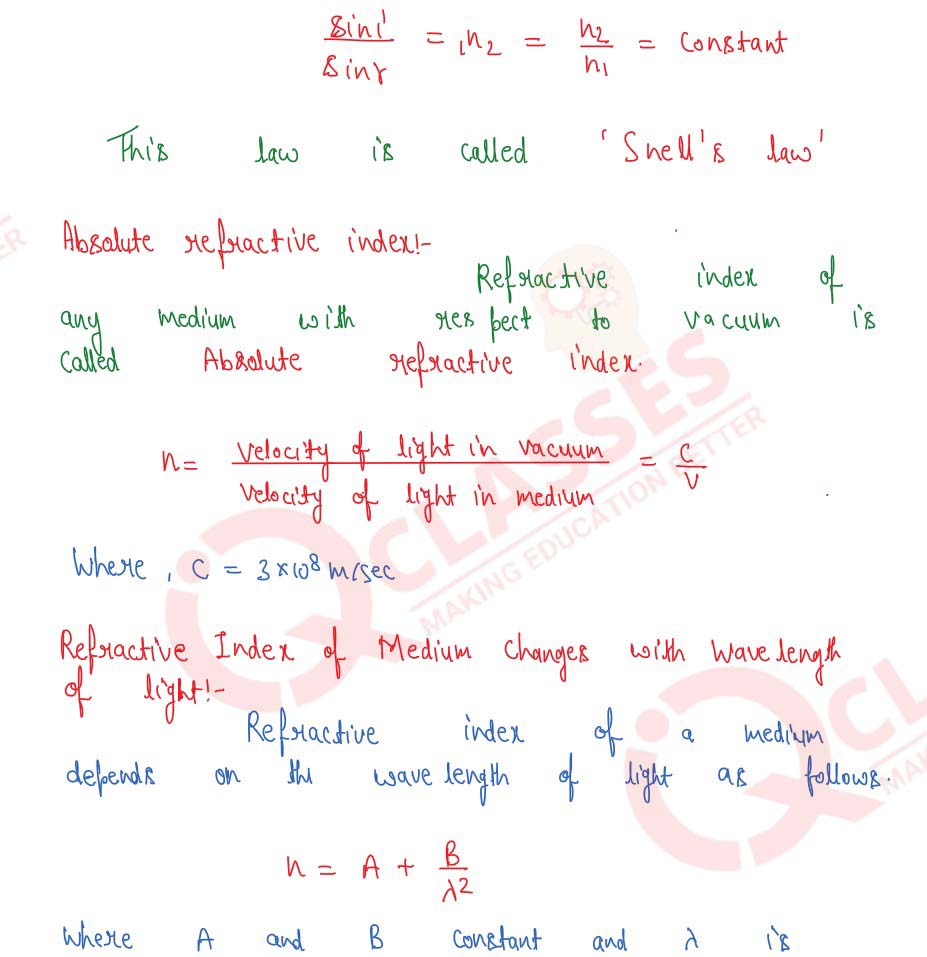 sin i / sin r = ₁n₂ = n₂/n₁ = Constant
This law is called 'Snell's law'
Absolute refractive index:-
Refractive index of
any medium with respect to vacuum is
called Absolute refractive index.
n = velocity of light in vacuum / velocity of light in medium = c/v
Where, c = 3×10⁸ m/sec
Refractive Index of Medium Changes with Wavelength
of light:-
Refractive index of a medium
depends on the wave length of light as follows.
n = A + B/λ²
where A and B constant and λ is
CLASSES
MAKING EDUCATION BETTER
ER
CL
MA